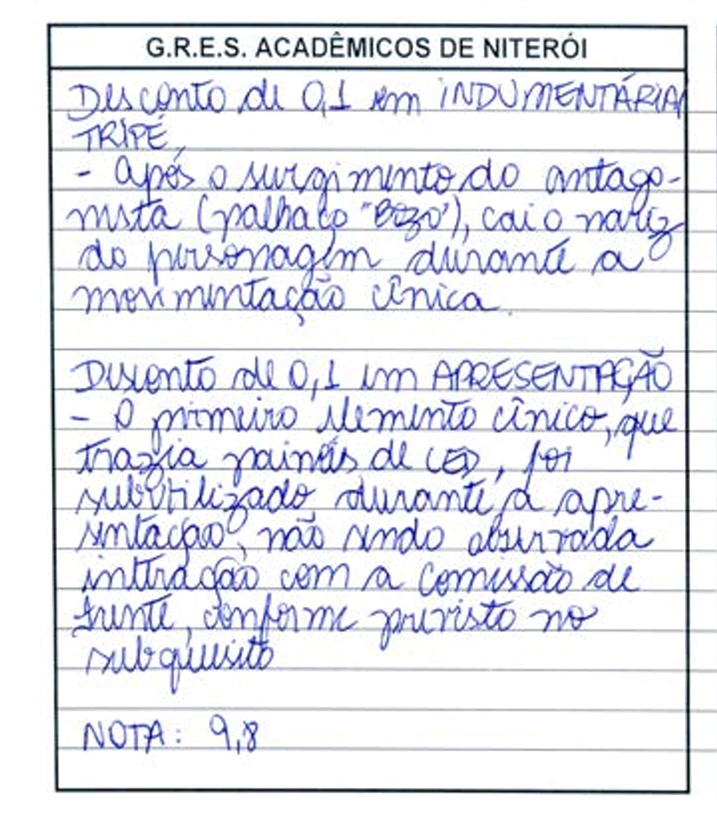 G.R.E.S. ACADÊMICOS DE NITERÓI
Desconto de 0,1 em INDUMENTÁRIA/
TRIPÉ
- Após o surgimento do antago-
nista (palhaço "BOZO"), cai o nariz
do personagem durante a
movimentação cênica.
Desconto de 0,1 em APRESENTAÇÃO
- O primeiro elemento cênico, que
trazia painéis de LED, foi
subutilizado durante a apre-
sentação, não sendo observada
interação com a Comissão de
frente, conforme previsto no
subquesito
NOTA: 9,8